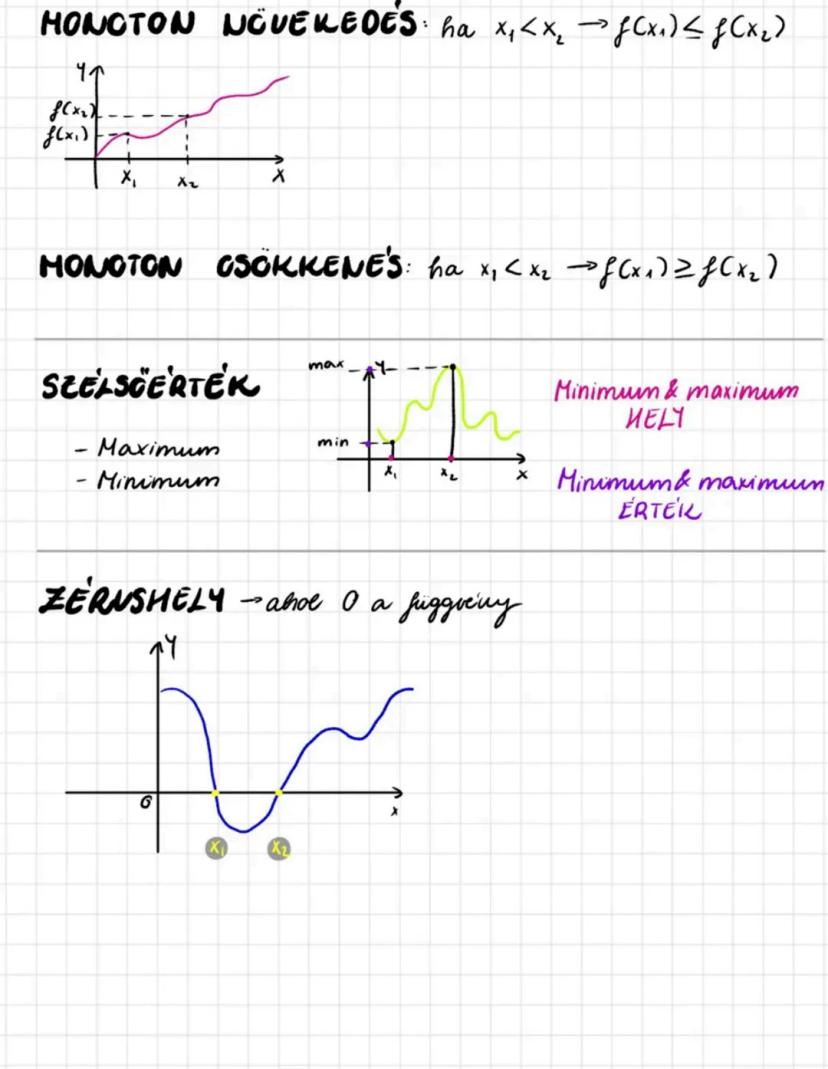 MONOTON NÖVEKEDÉS: ha x₁ < x₂ → f(x₁) ≤ f(x₂)
y
f(x₂)
f(x₁)
x₁ x₂ x
MONOTON CSÖKKENÉS: ha x₁ < x₂ → f(x₁) ≥ f(x₂)
SZÉLSŐÉRTÉK
- Maximum
- Minimum
max y
min
x₁ x₂ x
Minimum & maximum
HELY
Minimum & maximum
ÉRTÉK
ZÉRUSHELY → ahol 0 a függvény
y
0
x
x₁ x₂